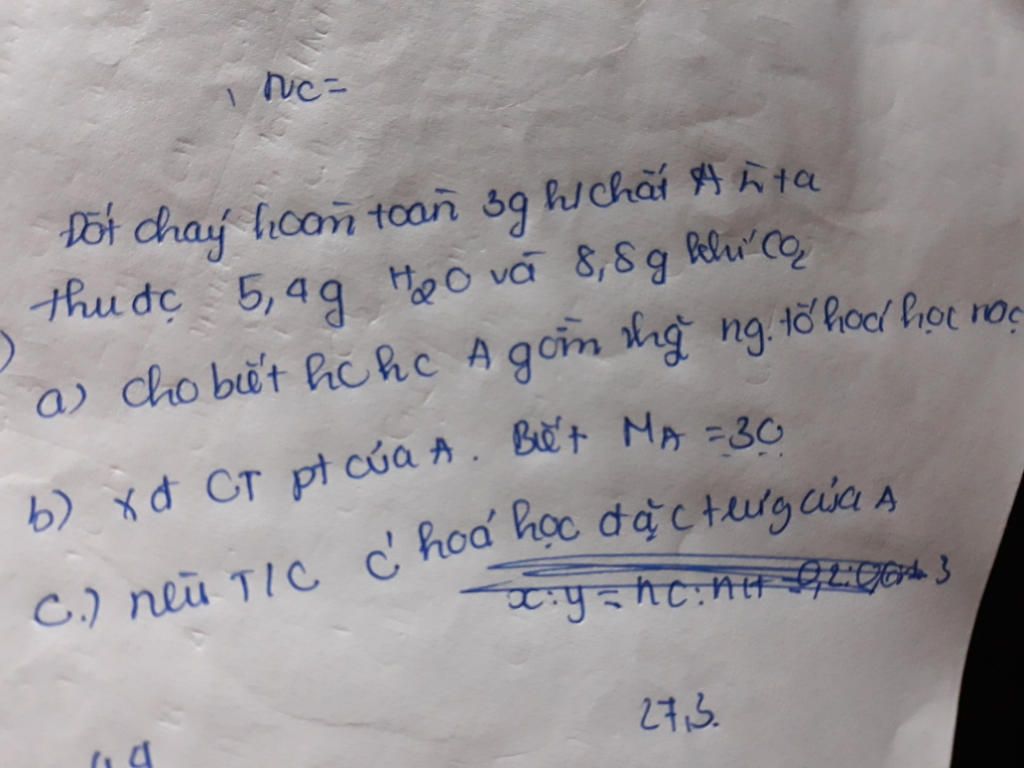 nC =
Đốt cháy hoàn toàn 3g h/chất A ta
thu đc 5,4g H₂O và 8,8g khí CO₂
a) Cho biết hc hc A gồm nhg ng.tố hoá học nào
b) xđ CT pt của A. Biết MA = 30
c.) nêu T/C hoá học đặc trưng của A
x:y = nC:nH
3
27,3.